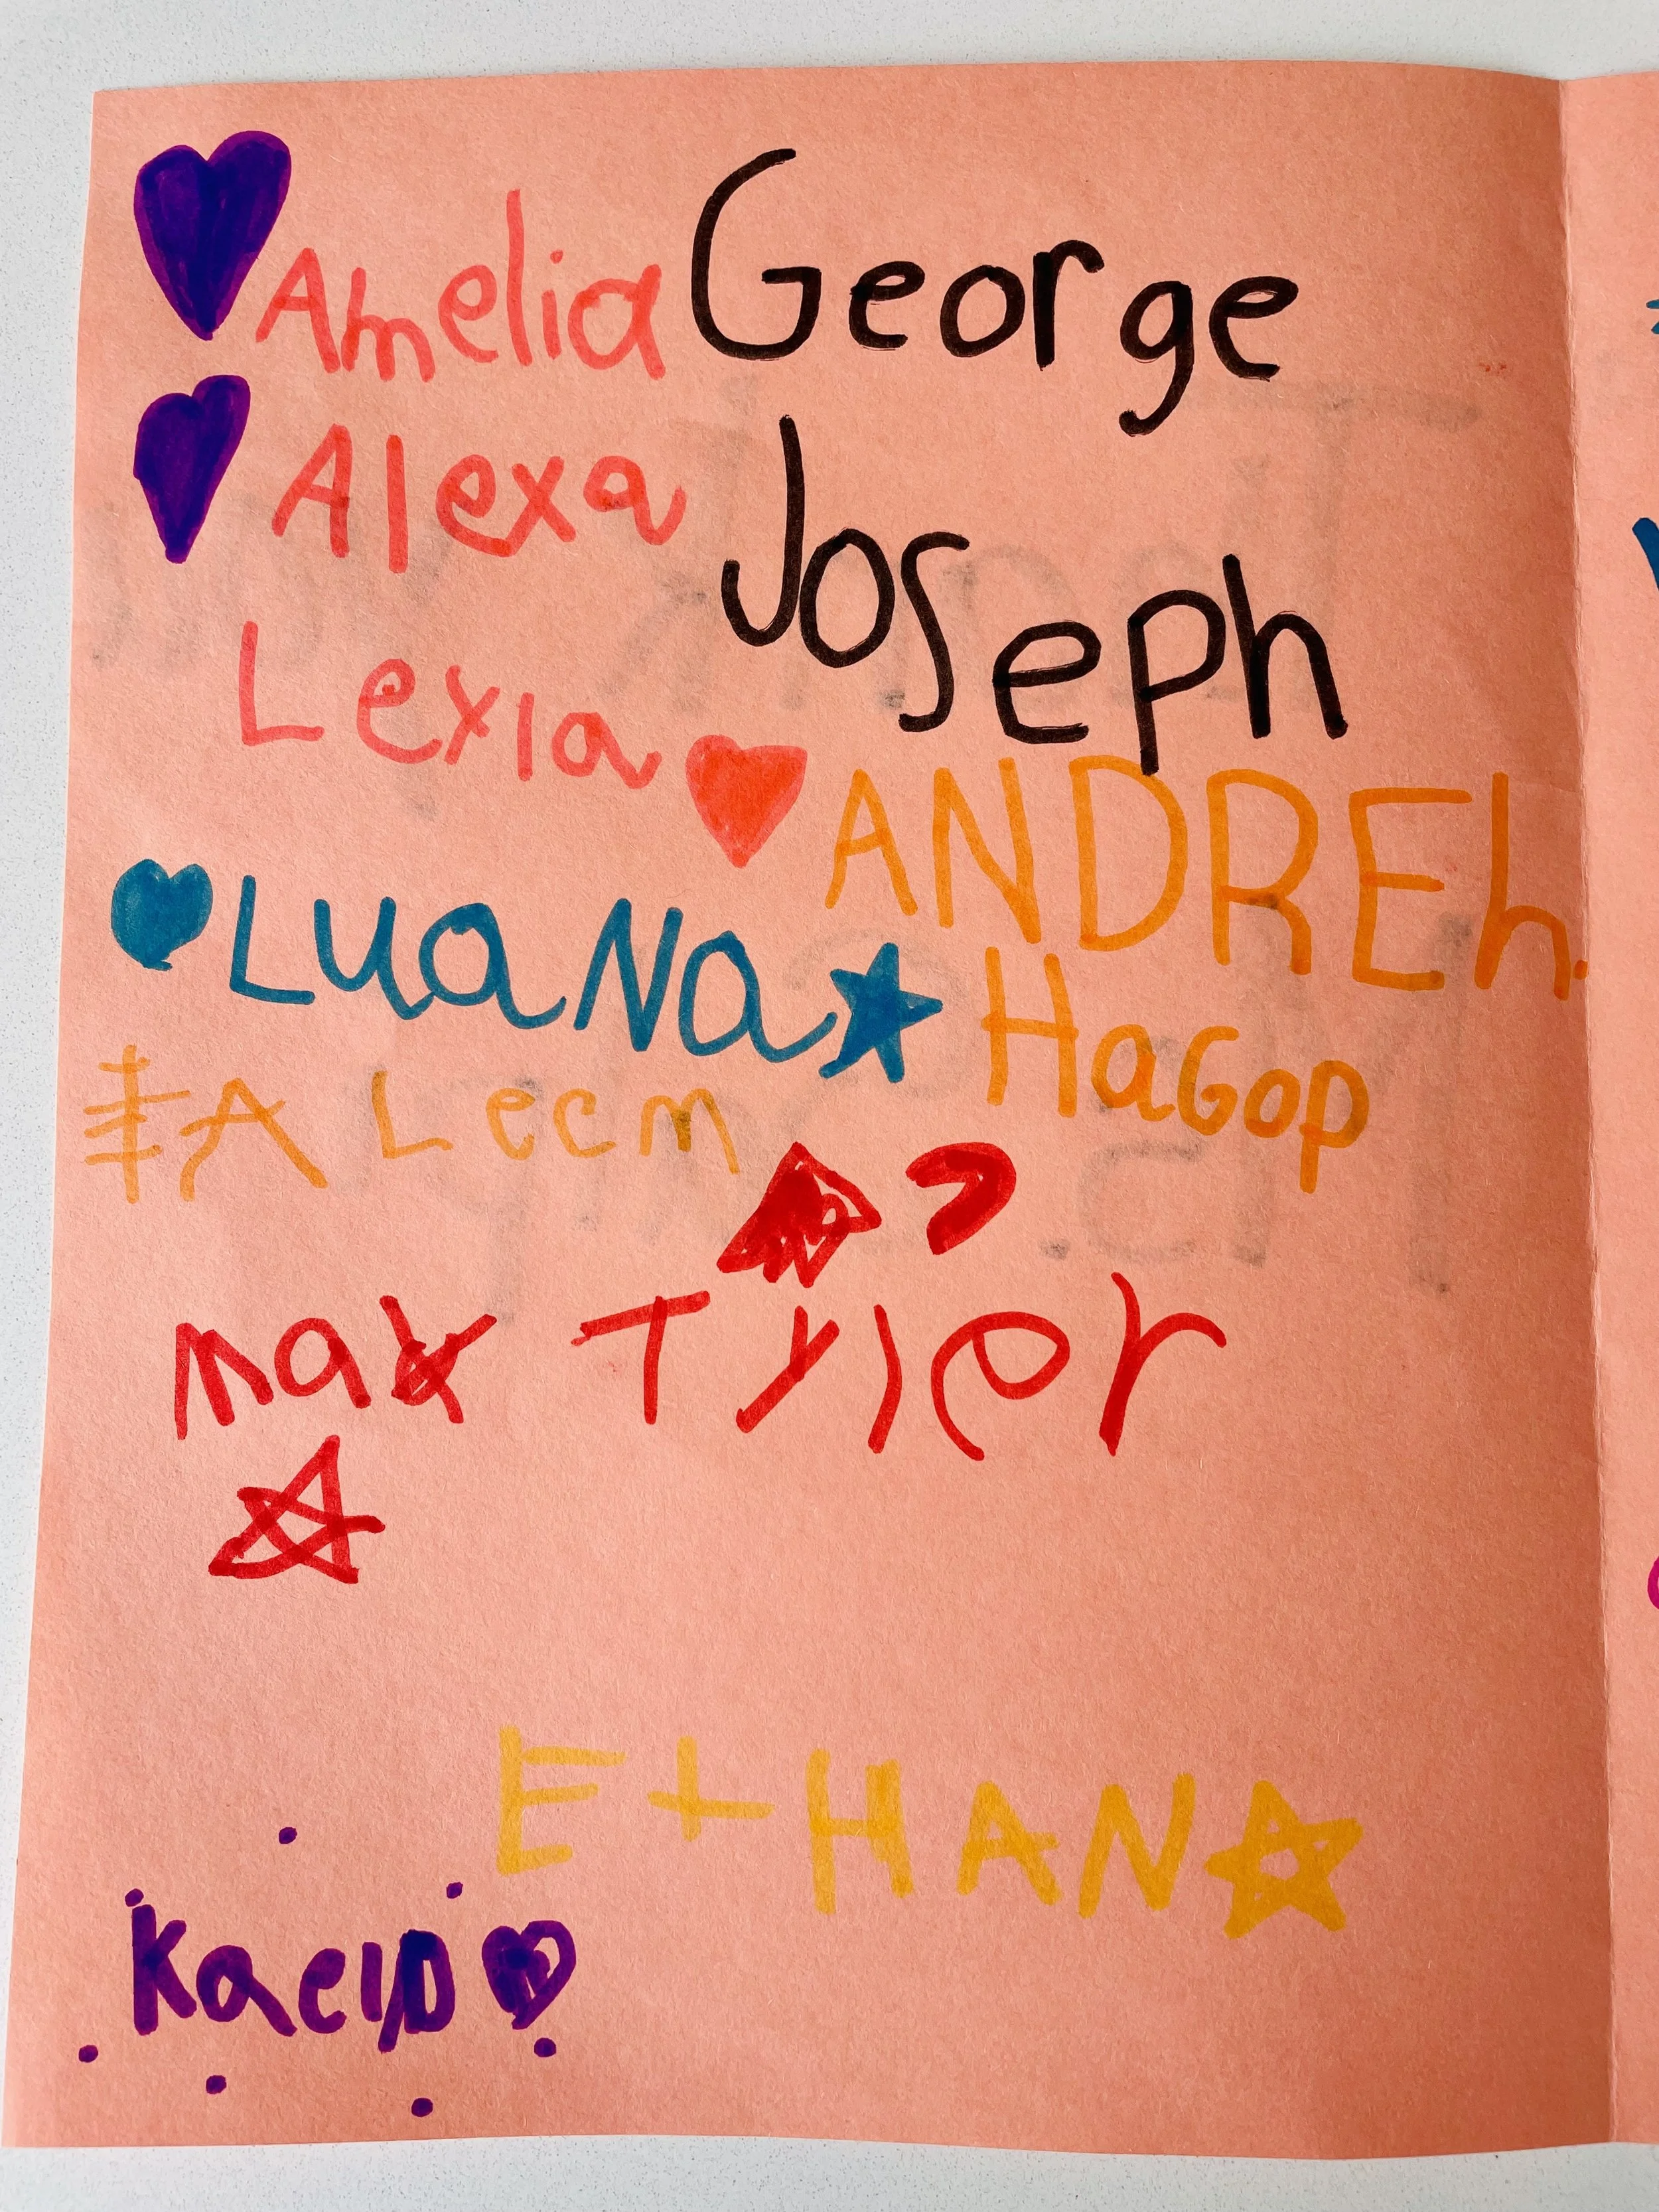 Amelia George
Alexa Joseph
Lexia
ANDREh.
LUaNa HaGop
ALeem
max Tyler
EtHAN